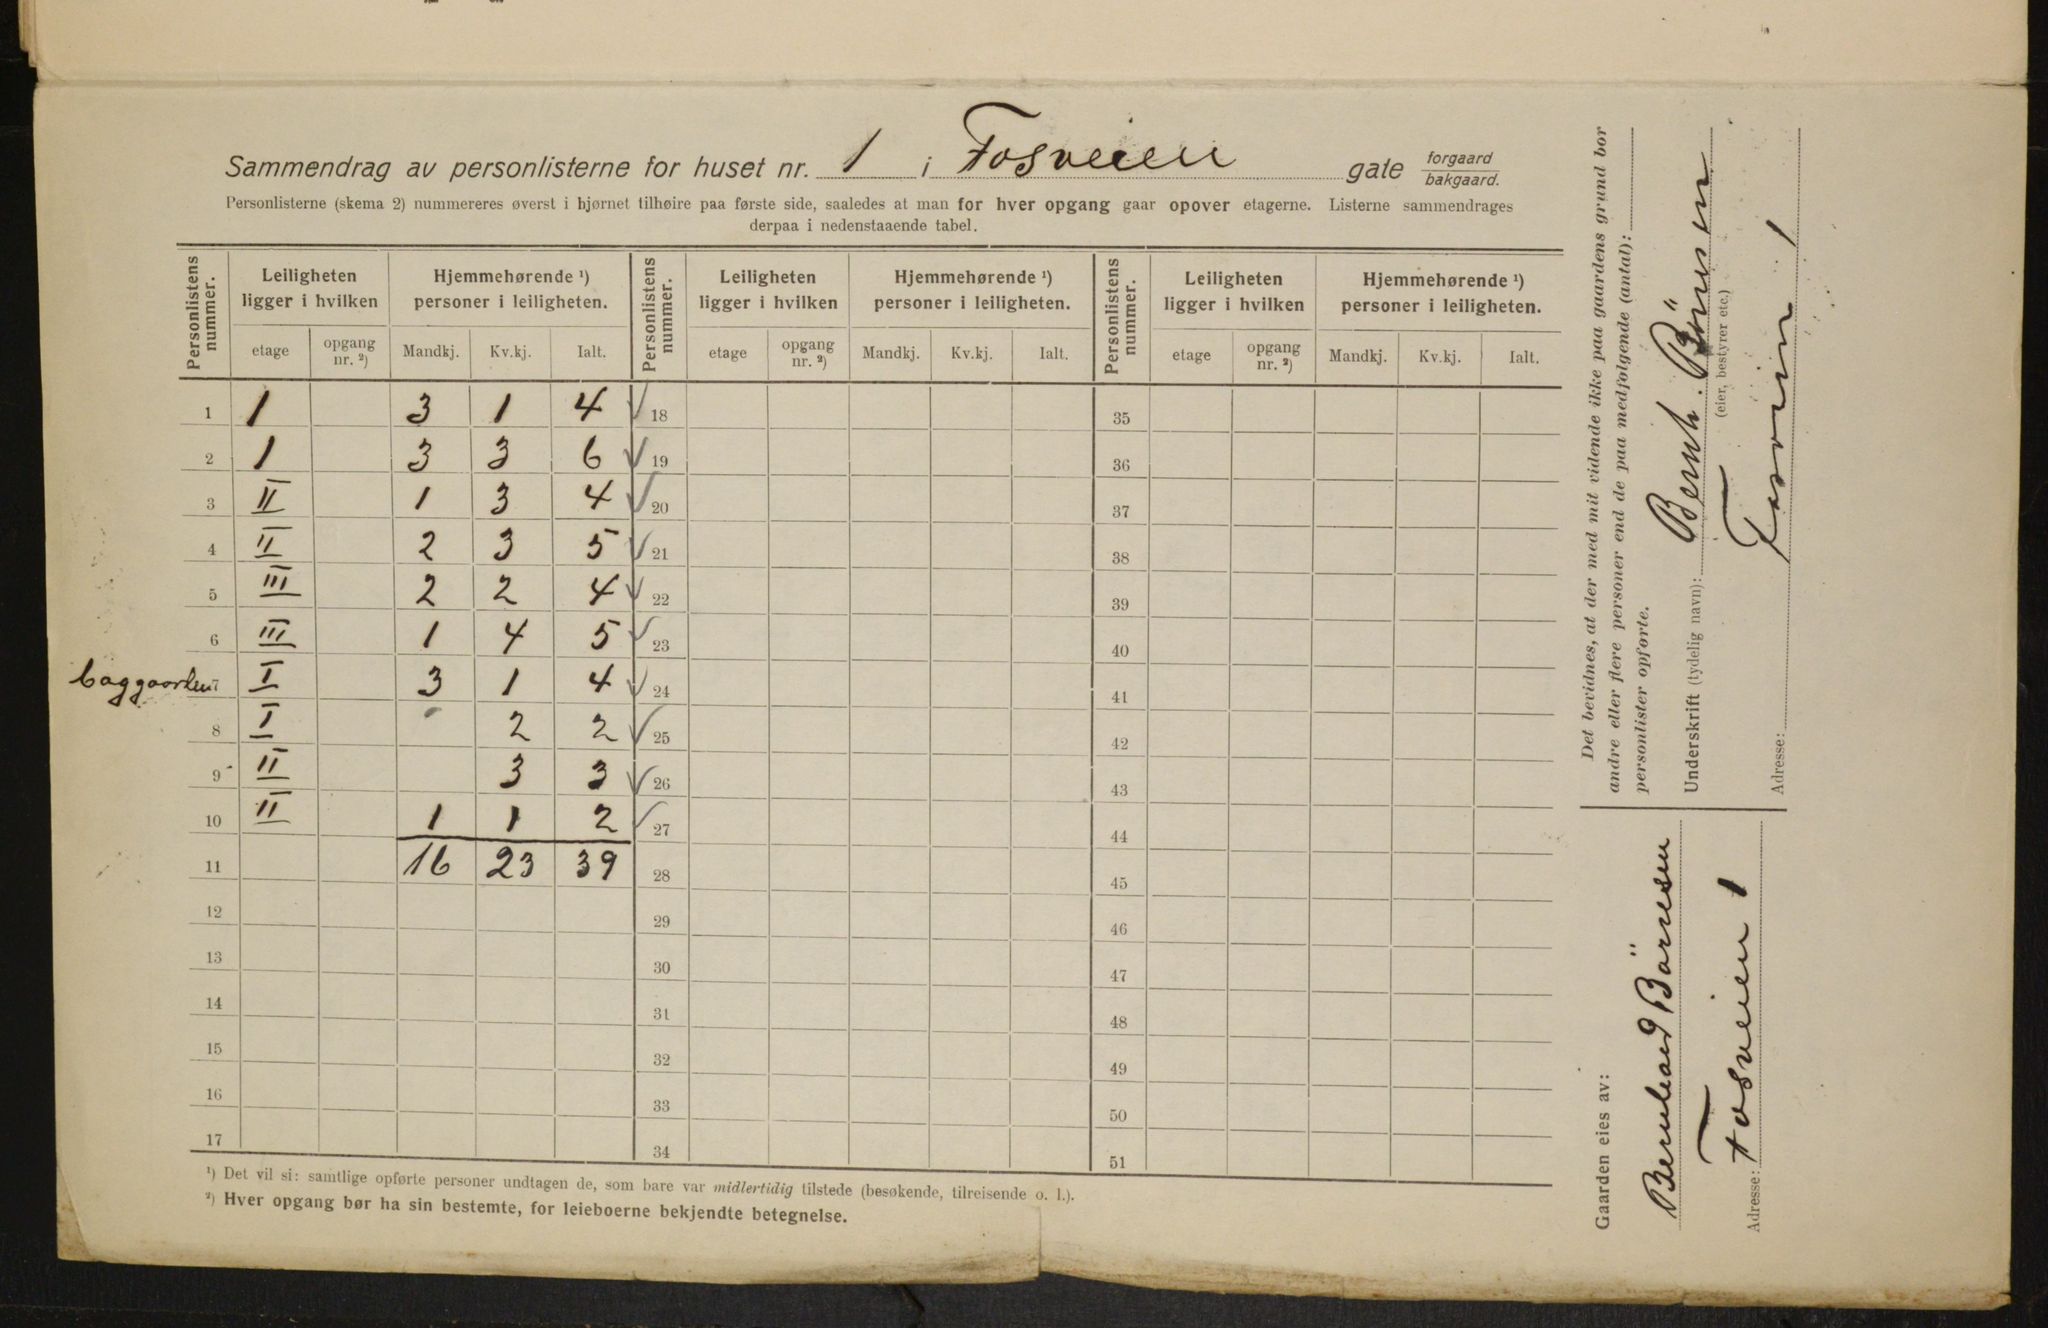 Sammendrag av personlisterne for huset nr. 1 i Fosveien gate forgaard bakgaard.
Personlisterne (skema 2) nummereres øverst i hjørnet tilhøire paa første side, saaledes at man for hver opgang gaar opover etagerne. Listerne sammendrages
derpaa i nedenstaaende tabel.
Personlistens nummer. Leiligheten ligger i hvilken Hjemmehørende ¹) personer i leiligheten. Personlistens nummer. Leiligheten ligger i hvilken Hjemmehørende ¹) personer i leiligheten. Personlistens nummer. Leiligheten ligger i hvilken Hjemmehørende ¹) personer i leiligheten.
etage opgang nr. ²) Mandkj. Kv.kj. Ialt. etage opgang nr. ²) Mandkj. Kv.kj. Ialt. etage opgang nr. ²) Mandkj. Kv.kj. Ialt.
1 1 3 1 4 18 35
2 1 3 3 6 19 36
3 II 1 3 4 20 37
4 II 2 3 5 21 38
5 III 2 2 4 22 39
6 III 1 4 5 23 40
baggaarden 7 I 3 1 4 24 41
8 I 2 2 25 42
9 II 3 3 26 43
10 II 1 1 2 27 44
11 16 23 39 28 45
12 29 46
13 30 47
14 31 48
15 32 49
16 33 50
17 34 51
¹) Det vil si: samtlige opførte personer undtagen de, som bare var midlertidig tilstede (besøkende, tilreisende o. l.).
²) Hver opgang bør ha sin bestemte, for leieboerne bekjendte betegnelse.
Det bevidnes, at der med mit vidende ikke paa gaardens grund bor
andre eller flere personer end de paa medfølgende (antal):
personlister opførte.
Underskrift (tydelig navn): Bernh. Börresen
(eier, bestyrer etc.)
Adresse: Fosveien 1
Gaarden eies av:
Bernhard Börresen
Adresse: Fosveien 1